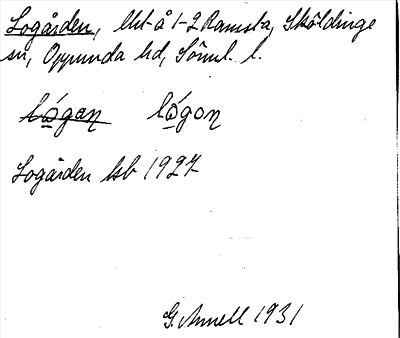 Logården, lht å 1-2 Ramsta, Sköldinge
sn, Oppunda hd, Söml. l.
lógaŋ lógoŋ
Logården hb 1927
G. Annell 1931